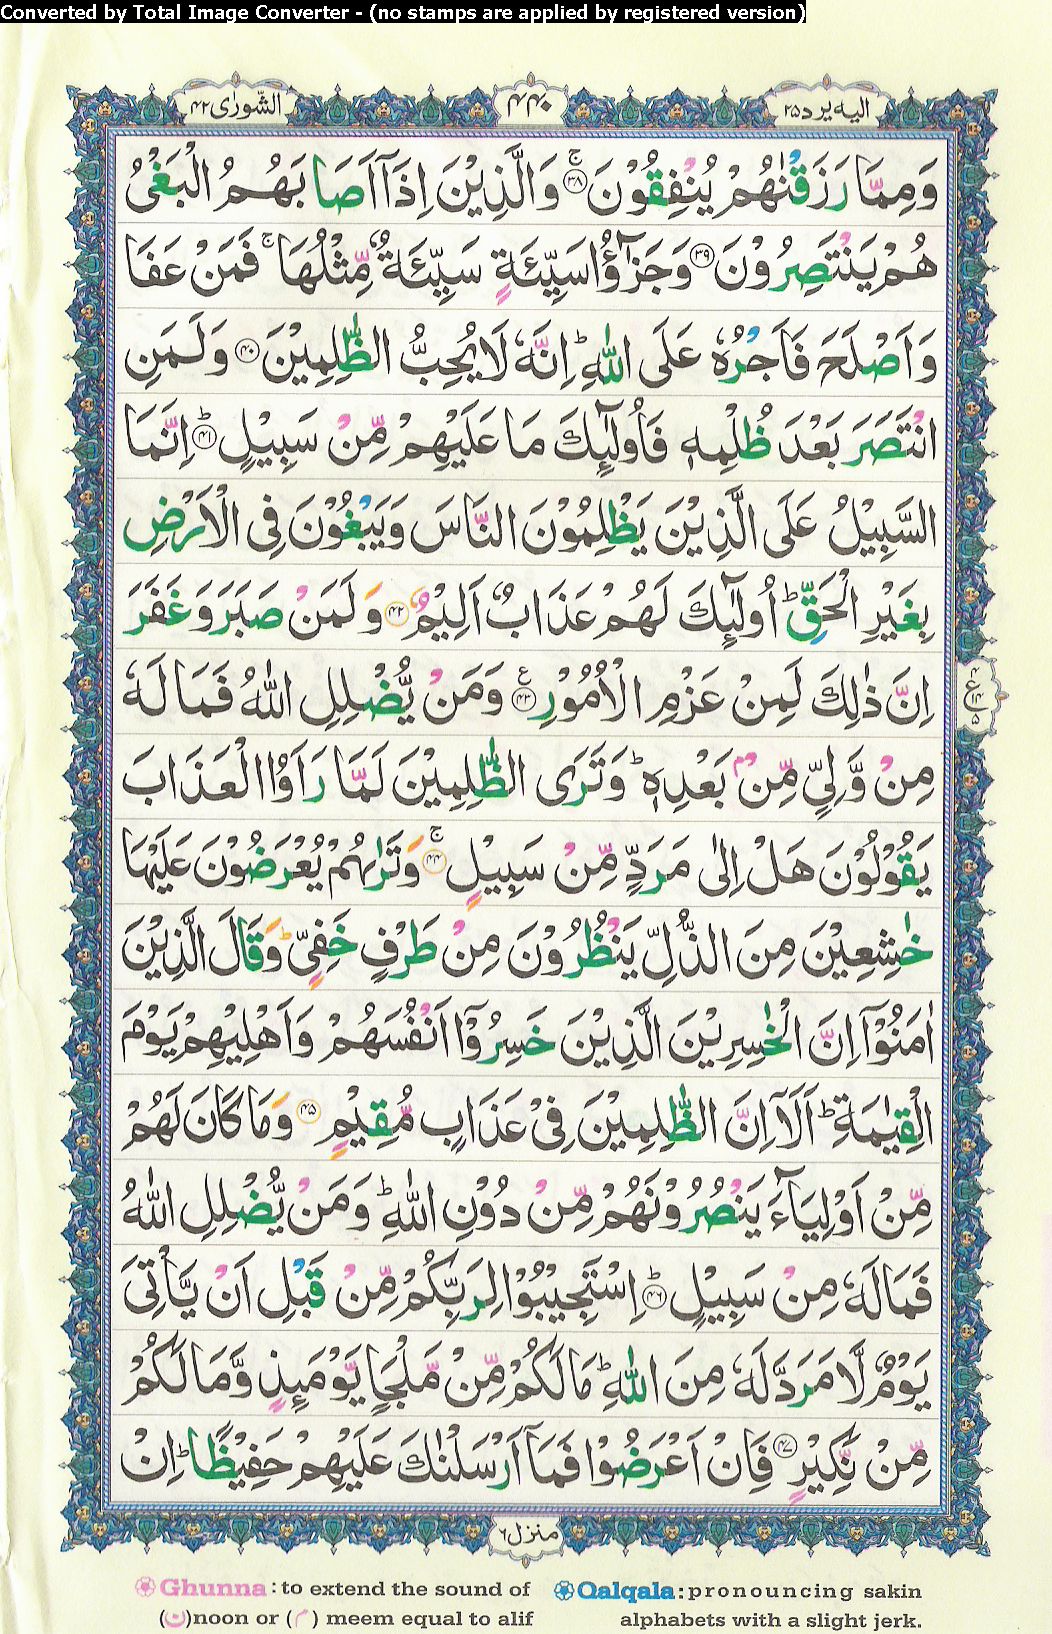 Converted by Total Image Converter - (no stamps are applied by registered version)
اليه يرد ٢٥
٤٤٠
الشّورٰى ٤٢
وَمِمَّا رَزَقْنٰهُمْ يُنْفِقُوْنَ ۚ ﴿٣٨﴾ وَالَّذِيْنَ اِذَآ اَصَابَهُمُ الْبَغْيُ
هُمْ يَنْتَصِرُوْنَ ﴿٣٩﴾ وَجَزٰٓؤُا سَيِّئَةٍ سَيِّئَةٌ مِّثْلُهَا ۚ فَمَنْ عَفَا
وَاَصْلَحَ فَاَجْرُهٗ عَلَى اللّٰهِ ؕ اِنَّهٗ لَا يُحِبُّ الظّٰلِمِيْنَ ﴿٤٠﴾ وَلَمَنِ
انْتَصَرَ بَعْدَ ظُلْمِهٖ فَاُولٰٓئِكَ مَا عَلَيْهِمْ مِّنْ سَبِيْلٍ ؕ ﴿٤١﴾ اِنَّمَا
السَّبِيْلُ عَلَى الَّذِيْنَ يَظْلِمُوْنَ النَّاسَ وَيَبْغُوْنَ فِى الْاَرْضِ
بِغَيْرِ الْحَقِّ ؕ اُولٰٓئِكَ لَهُمْ عَذَابٌ اَلِيْمٌ ﴿٤٢﴾ وَلَمَنْ صَبَرَ وَغَفَرَ
اِنَّ ذٰلِكَ لَمِنْ عَزْمِ الْاُمُوْرِ ﴿٤٣﴾ وَمَنْ يُّضْلِلِ اللّٰهُ فَمَا لَهٗ
مِنْ وَّلِيٍّ مِّنْۢ بَعْدِهٖ ؕ وَتَرَى الظّٰلِمِيْنَ لَمَّا رَاَوُا الْعَذَابَ
يَقُوْلُوْنَ هَلْ اِلٰى مَرَدٍّ مِّنْ سَبِيْلٍ ۚ ﴿٤٤﴾ وَتَرٰىهُمْ يُعْرَضُوْنَ عَلَيْهَا
خٰشِعِيْنَ مِنَ الذُّلِّ يَنْظُرُوْنَ مِنْ طَرْفٍ خَفِيٍّ ؕ وَقَالَ الَّذِيْنَ
اٰمَنُوْٓا اِنَّ الْخٰسِرِيْنَ الَّذِيْنَ خَسِرُوْٓا اَنْفُسَهُمْ وَاَهْلِيْهِمْ يَوْمَ
الْقِيٰمَةِ ؕ اَلَآ اِنَّ الظّٰلِمِيْنَ فِيْ عَذَابٍ مُّقِيْمٍ ﴿٤٥﴾ وَمَا كَانَ لَهُمْ
مِّنْ اَوْلِيَآءَ يَنْصُرُوْنَهُمْ مِّنْ دُوْنِ اللّٰهِ ؕ وَمَنْ يُّضْلِلِ اللّٰهُ
فَمَا لَهٗ مِنْ سَبِيْلٍ ؕ ﴿٤٦﴾ اِسْتَجِيْبُوْا لِرَبِّكُمْ مِّنْ قَبْلِ اَنْ يَّاْتِيَ
يَوْمٌ لَّا مَرَدَّ لَهٗ مِنَ اللّٰهِ ؕ مَا لَكُمْ مِّنْ مَّلْجَاٍ يَّوْمَئِذٍ وَّمَا لَكُمْ
مِّنْ نَّكِيْرٍ ﴿٤٧﴾ فَاِنْ اَعْرَضُوْا فَمَآ اَرْسَلْنٰكَ عَلَيْهِمْ حَفِيْظًا ؕ اِنْ
٤
ع
١٤
٥
منزل ٦
Ghunna : to extend the sound of
(ن)noon or (م) meem equal to alif
Qalqala : pronouncing sakin
alphabets with a slight jerk.